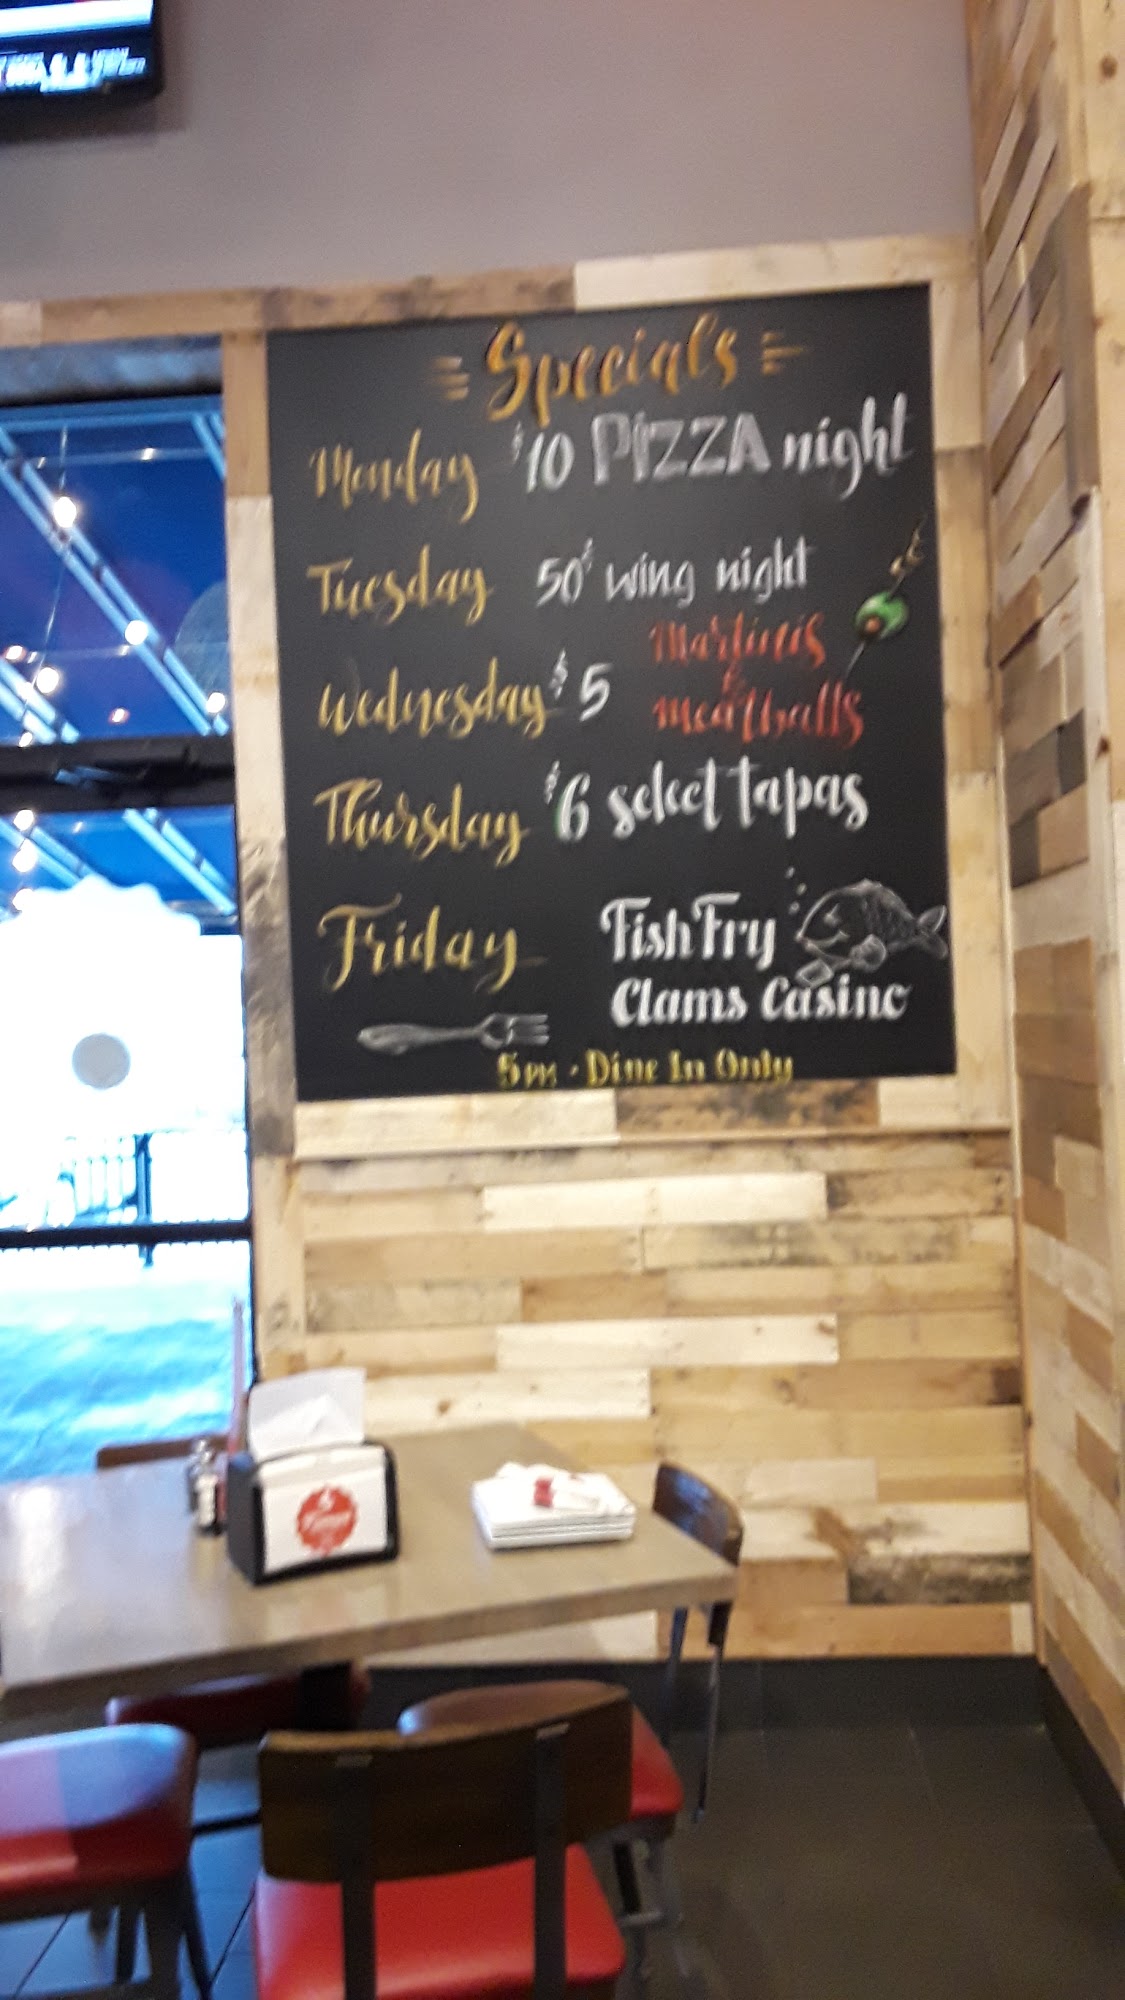 Specials
Monday $10 PIZZA night
Tuesday 50¢ wing night
Wednesday $5 Martinis & Meatballs
Thursday $6 select tapas
Friday Fish Fry
Clams Casino
5PM - Dine In Only